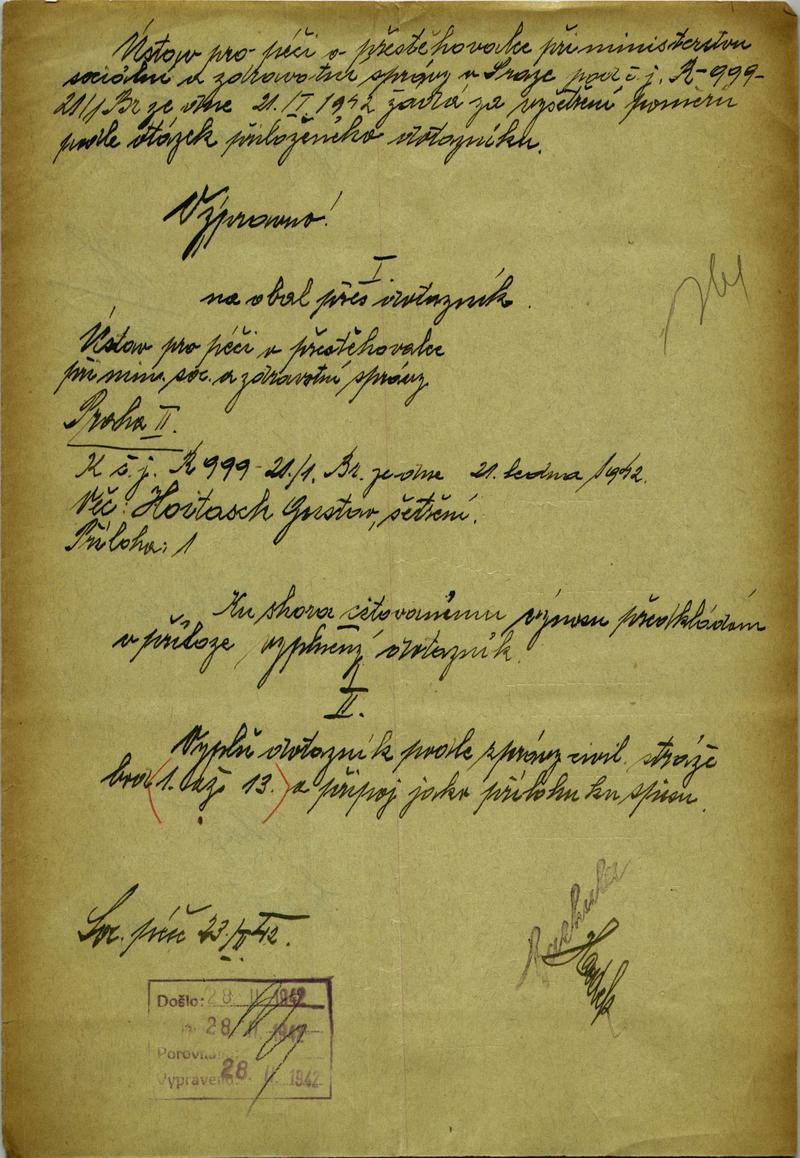 Ústav pro péči o přestěhovalce při ministerstvu
sociální a zdravotní správy v Praze pod č. j. R-999-
21/1 Br ze dne 21./I. 1942 žádá za vyšetření poměrů
podle otázek přiloženého dotazníku.
Výpravno!
I.
na obal přes dotazník.
Ústav pro péči o přestěhovalce
při min. soc. a zdravotní správy
Praha II.
K č. j. R 999-21/1. Br. ze dne 21. ledna 1942.
Věc: Hoitasch Gustav, šetření.
Příloha: 1
Ku shora citovanému výnosu předkládám
v příloze vyplněný dotazník.
II.
Vyplň dotazník podle zprávy civil. stráže
bod 1. až 13. a připoj jako přílohu ku spisu.
Soc. péče 23./II. 42.
Došlo: 28 II 1942
28 II 1942
Porovnáno:
Vypraveno: 28 II 1942